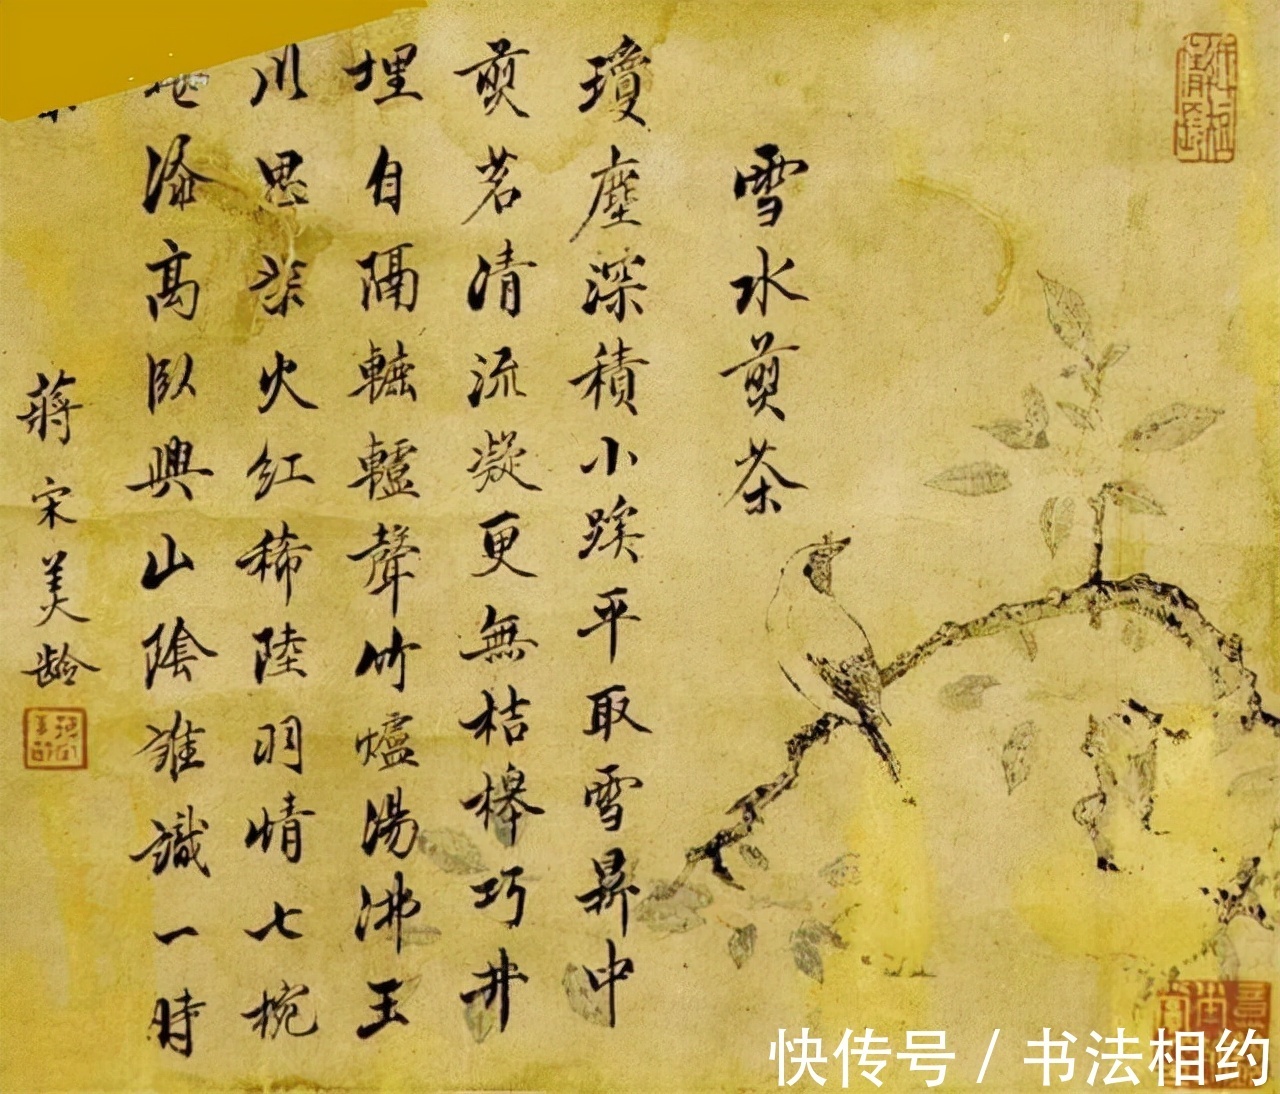 雪水煎茶
瓊塵深積小蹊平取雪鼎中
煎茗清流凝更無桔槔巧井
埋自隔轆轤聲竹爐湯沸玉
川思柴火紅稀陸羽情七椀
添高臥興山陰誰識一時
蔣宋美齡
快传号 / 书法相约